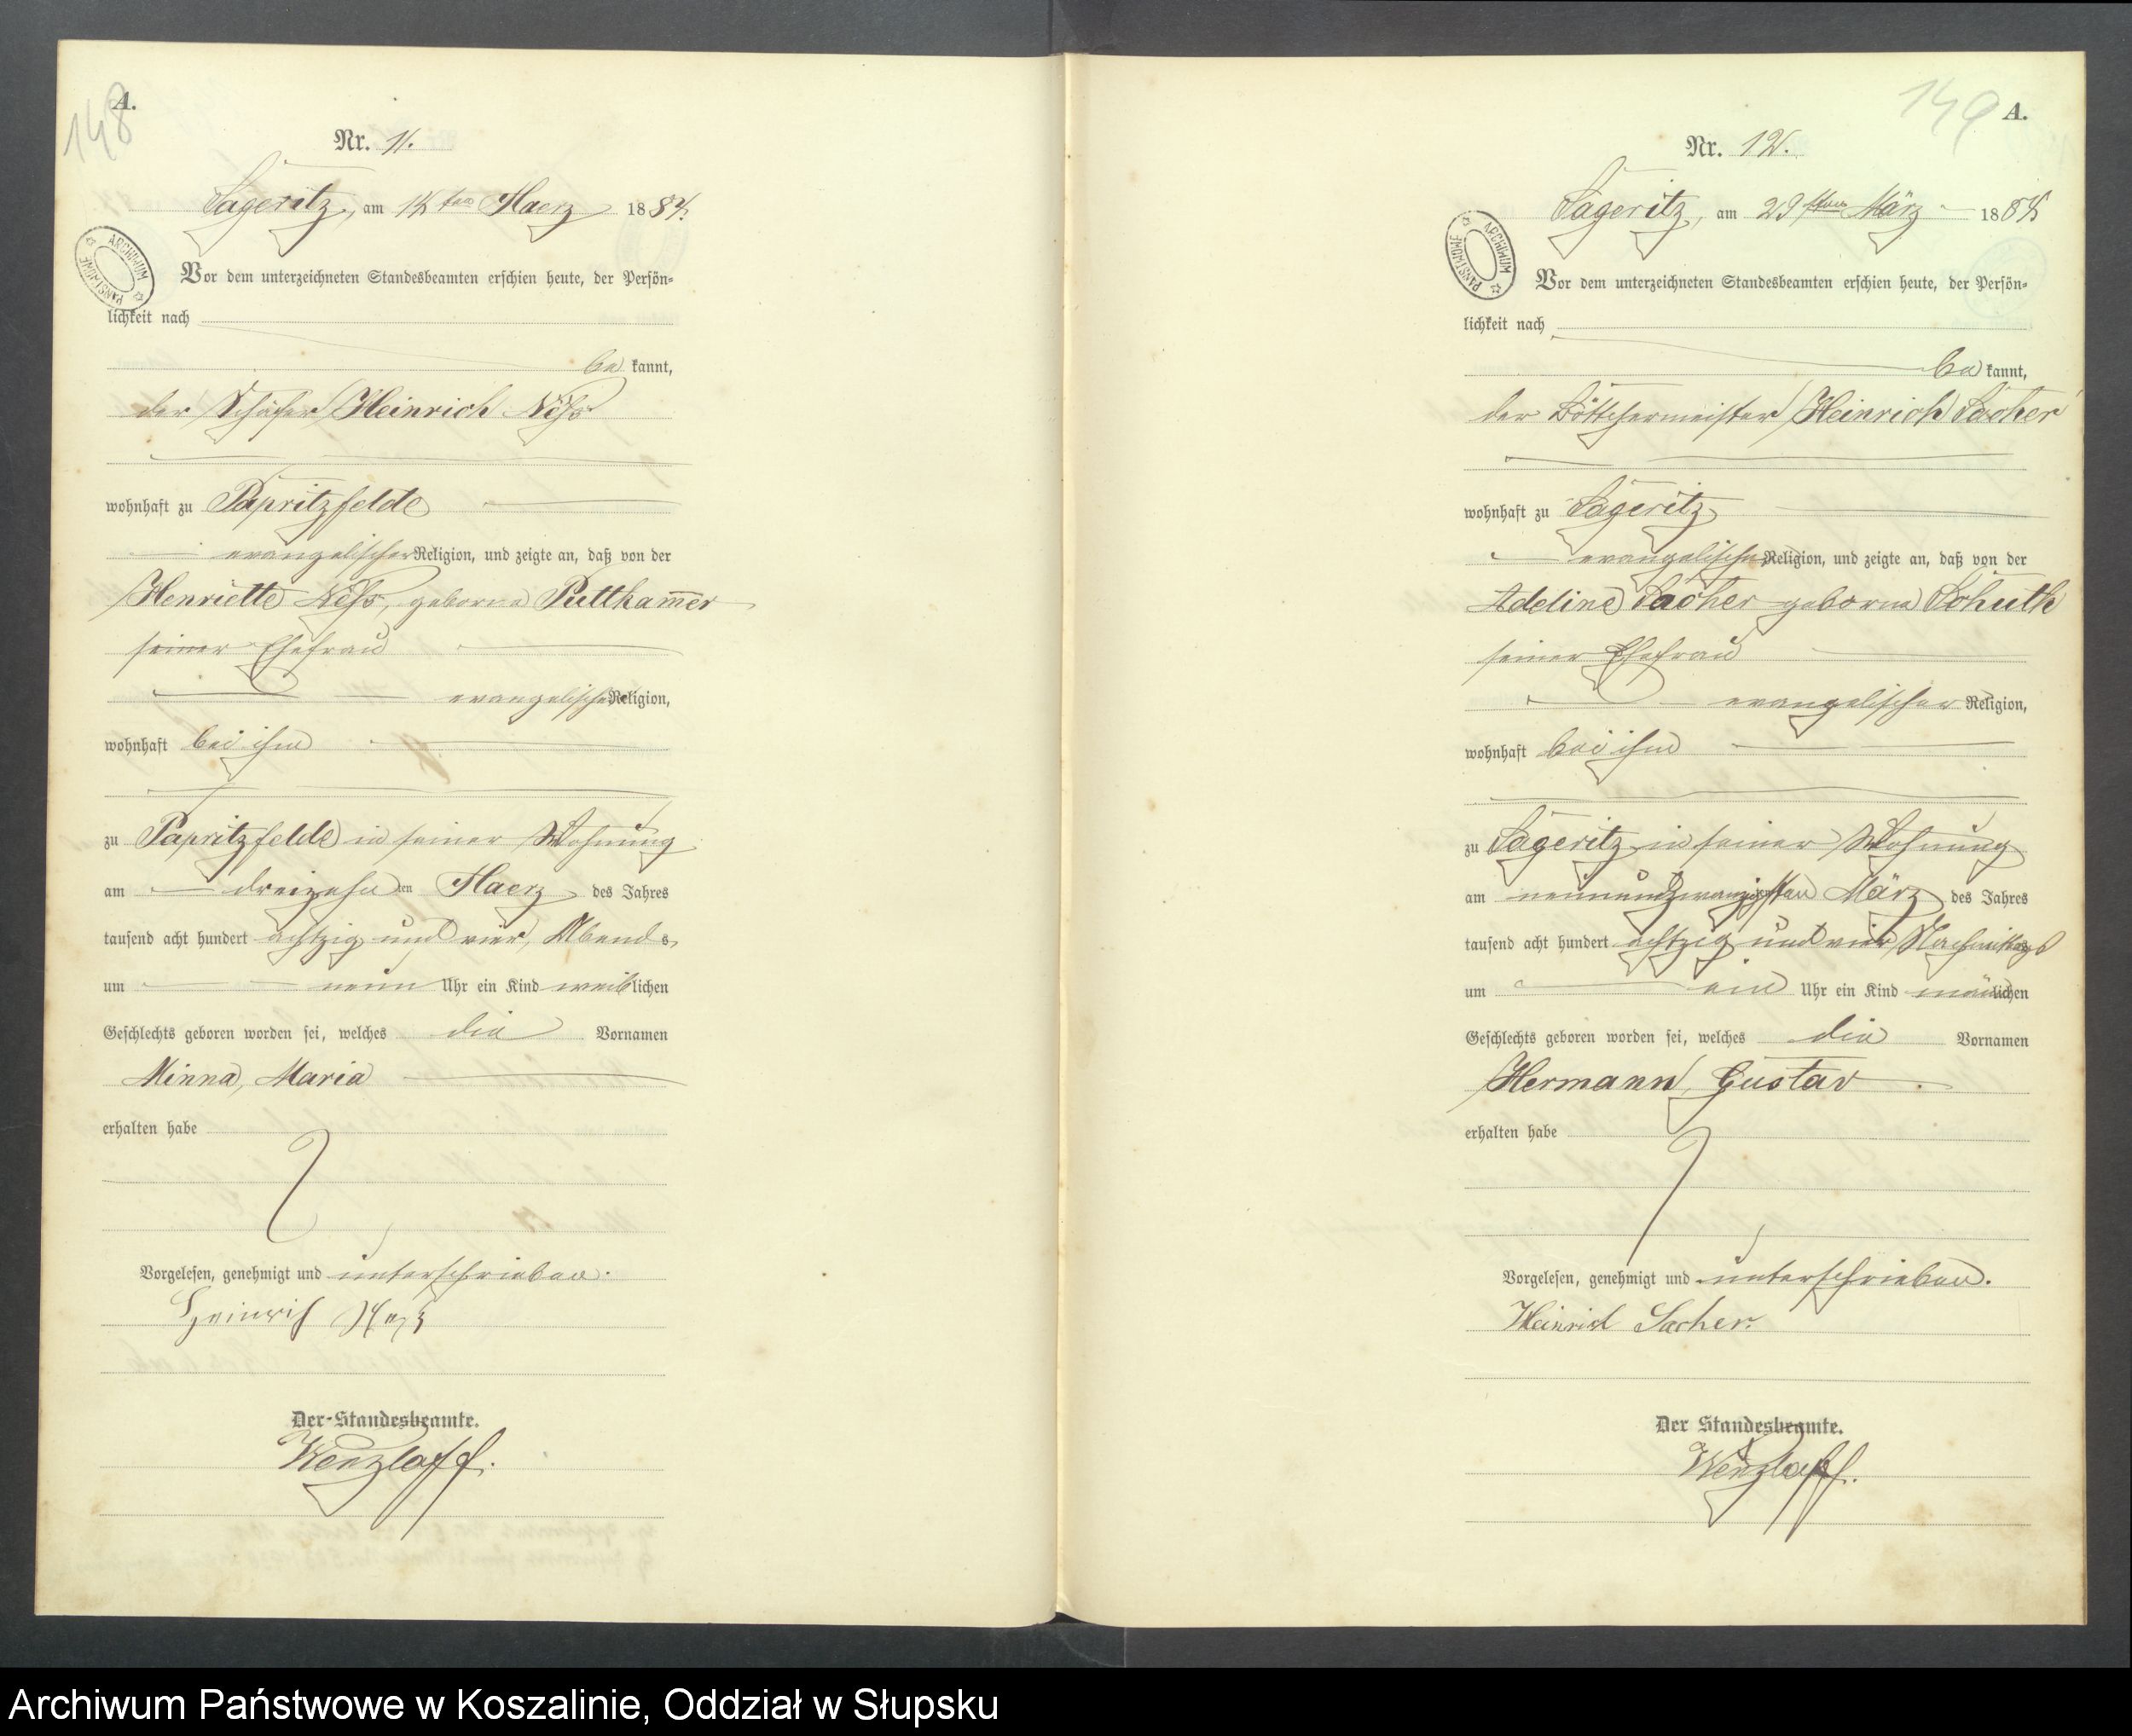 148
A.
Nr. 11.
Sageritz, am 14ten Maerz 1884.
ARCHIWUM PAŃSTWOWE
Vor dem unterzeichneten Standesbeamten erschien heute, der Persön-
lichkeit nach
bekannt,
der Schäfer Heinrich
wohnhaft zu Papritzfelde
evangelischer Religion, und zeigte an, daß von der
Henriette geborne Puttkam̅er
seiner Ehefrau
evangelischer Religion,
wohnhaft bei ihm
zu Papritzfelde in seiner Wohnung
am dreizehnten Maerz des Jahres
tausend acht hundert achtzig und vier, Abends
um neun Uhr ein Kind weiblichen
Geschlechts geboren worden sei, welches die Vornamen
Minna, Maria
erhalten habe
Vorgelesen, genehmigt und unterschrieben.
Heinrich
Der Standesbeamte.
Wenzlaff.
149
A.
Nr. 12.
Sageritz, am 29sten März 1884
ARCHIWUM PAŃSTWOWE
Vor dem unterzeichneten Standesbeamten erschien heute, der Persön-
lichkeit nach
bekannt,
der Böttchermeister Heinrich Sacher
wohnhaft zu Sageritz
evangelischer Religion, und zeigte an, daß von der
Adeline Sacher geborne Schuth
seiner Ehefrau
evangelischer Religion,
wohnhaft bei ihm
zu Sageritz in seiner Wohnung
am neunundzwanzigsten März des Jahres
tausend acht hundert achtzig und vier Nachmittags
um ein Uhr ein Kind männlichen
Geschlechts geboren worden sei, welches die Vornamen
Hermann, Gustav
erhalten habe
Vorgelesen, genehmigt und unterschrieben.
Heinrich Sacher.
Der Standesbeamte.
Wenzlaff.
Archiwum Państwowe w Koszalinie, Oddział w Słupsku